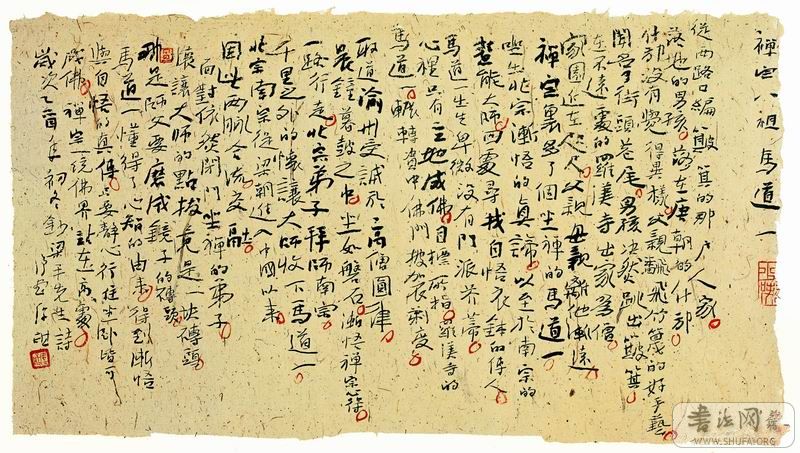 禅宗八祖馬道一
從西路口編簸箕的那户人家
落地的男孩 落在唐朝的什邡
什邡没有覺得異樣 父親翻飛竹篾的好手藝
閙了街頭巷尾 男孩决然跳出簸箕
在不遠處的羅漢寺出家爲僧
家園近在咫尺 父親母親離他漸遠
禪室裏多了個坐禪的馬道一
北宗漸悟的真諦 以至於南宗的
慧能大師四處尋找自悟衣鉢的傳人
馬道一生生卑微 没有門派芥蒂
心裡只有立地成佛 目標所指 羅漢寺的
馬道一 輾轉資中 佛門披袈裟度
取道渝州受誡於高僧圓律
晨鐘暮鼓之中 坐如磐石 漸悟禪宗
一路行走 北宗弟子拜師南宗
千里之外的懷讓大師收下馬道一
北宗南宗從梁朝進入中國以來
因此兩脉合流交融
面對依然閉門坐禪的弟子
懷讓大師的點拔 竟是一塊磚頭
那是師父要磨成鏡子的磚頭
馬道一懂得了心智的由来 得到漸悟
與自悟的真傳 只要静心 行住坐卧皆可
成佛 禪宗一統佛界就在而處
歲次乙酉年初冬 鈔梁平先生詩
書法网
WWW.SHUFA.ORG